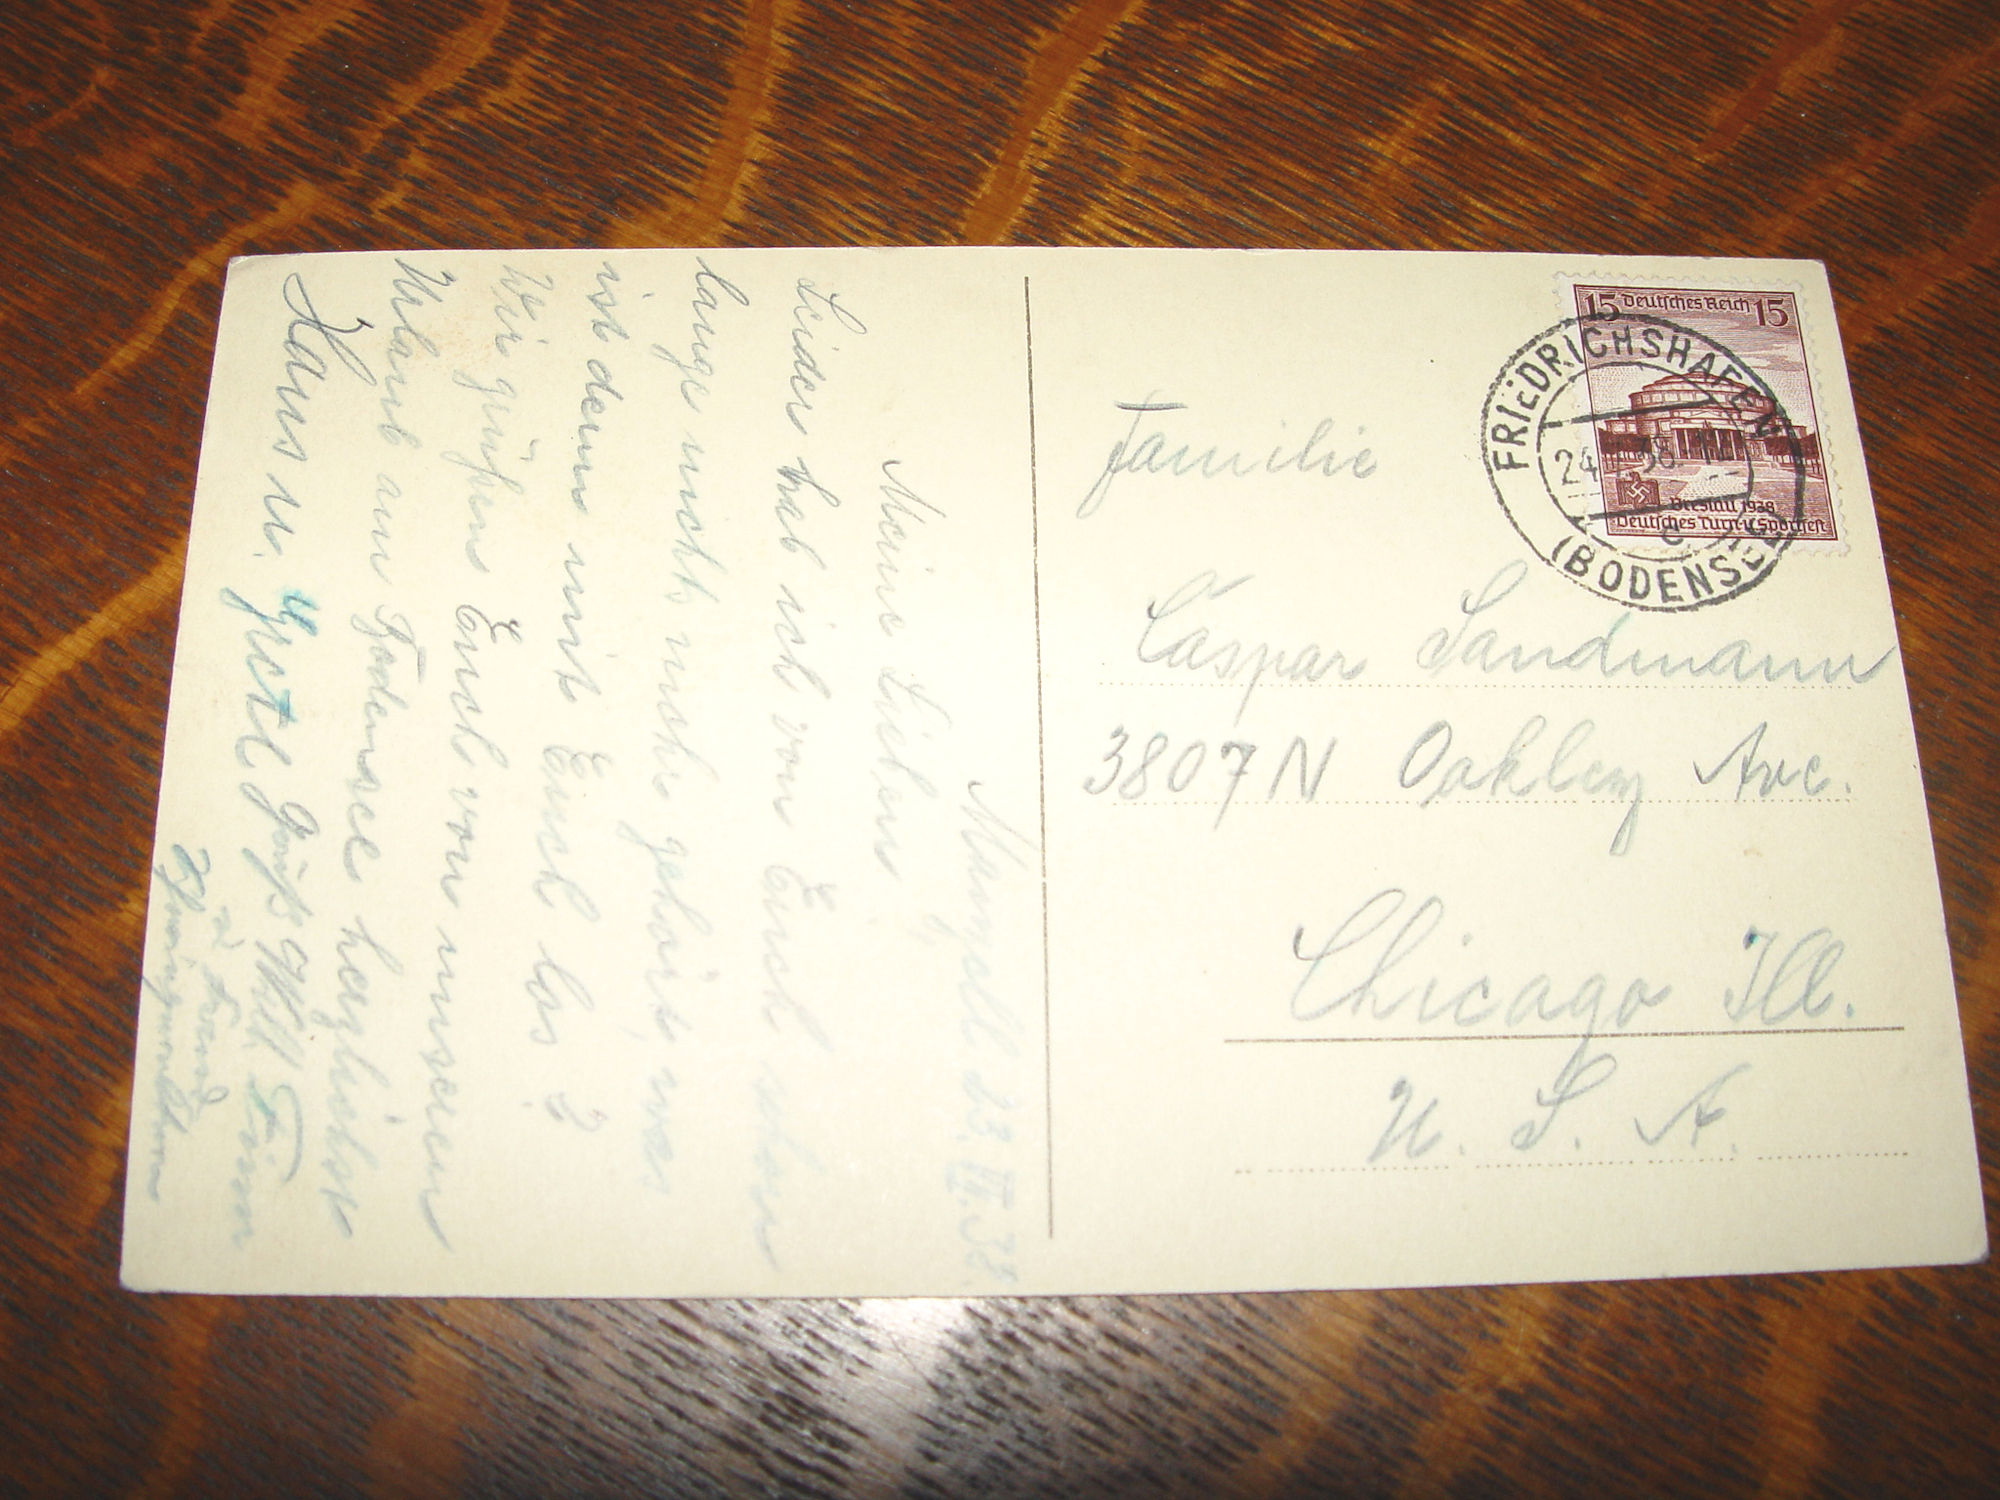 Manzell 23. VII. 38.
Meine Lieben
Leider hab ich von Euch schon
lange nichts mehr gehört, was
ist denn mit Euch los?
Wir grüßen Euch von unserem
Urlaub am Bodensee herzlichst
Hans u. Gretl Gruß Will
u. Frau
Familie
Caspar Sandmann
3807 N Oakley Ave.
Chicago Ill.
U. S. A.
15 Deutsches Reich 15
Breslau 1938
Deutsches Turn- u. Sportfest
FRIEDRICHSHAFEN
24. 38
c
(BODENSEE)